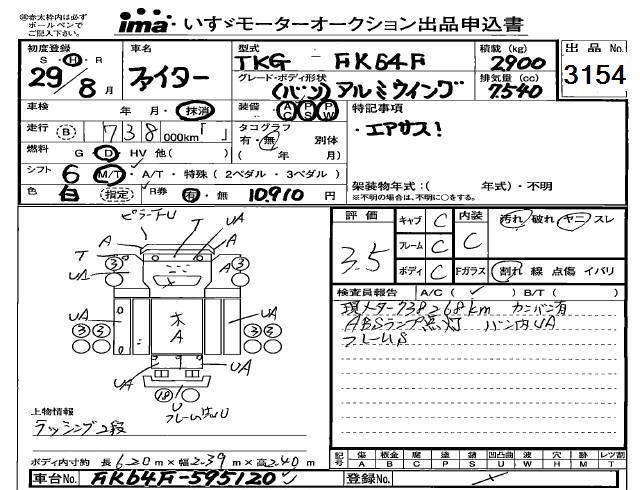 ㊟赤太枠内は必ず
ボールペンで
ご記入下さい。
ima いすゞモーターオークション出品申込書
初度登録 S・H・R 29年 8月
車名 ファイター
型式 TKG-FK64F
積載 (kg) 2900
出品No. 3154
グレード・ボディ形状 (バン)アルミウイング
排気量 (cc) 7540
車検 年・月・抹消
装備 AC PS PW
特記事項
・エアサス!
走行 (B) 738000km「 」
タコグラフ 有・無 別体
( 年 月)
燃料 G・D・HV 他( )
シフト 6 M/T・A/T・特殊(2ペダル・3ペダル)
架装物年式:( 年式)・不明
※不明の場合は、不明に○をする。
色 白 (指定) R券 有・無 10,910円
評価 3.5
キャブ C 内装 C 汚れ 破れ ヤニ スレ
フレーム C
ボディ C Fガラス 割れ 線 点傷 イバリ
検査員報告 A/C( ✓ ) B/T( )
現メーター738268km カンバン有
ABSランプ点灯 バン内UA
フレームS
ピラー下U
T UA
A A
T ③ A ③
UA
UA UA
③③ ③③
木
A
UA UA
⑱ U
上物情報
ラッシング2段
ボディ内寸約 長620m×幅2.39m×高2.40m
記号 傷 板金 腐 塗 錆 凹凸曲 波 穴 跡 レツ割
A B C P S U W H M T
車台No. FK64F-595120
登録No.